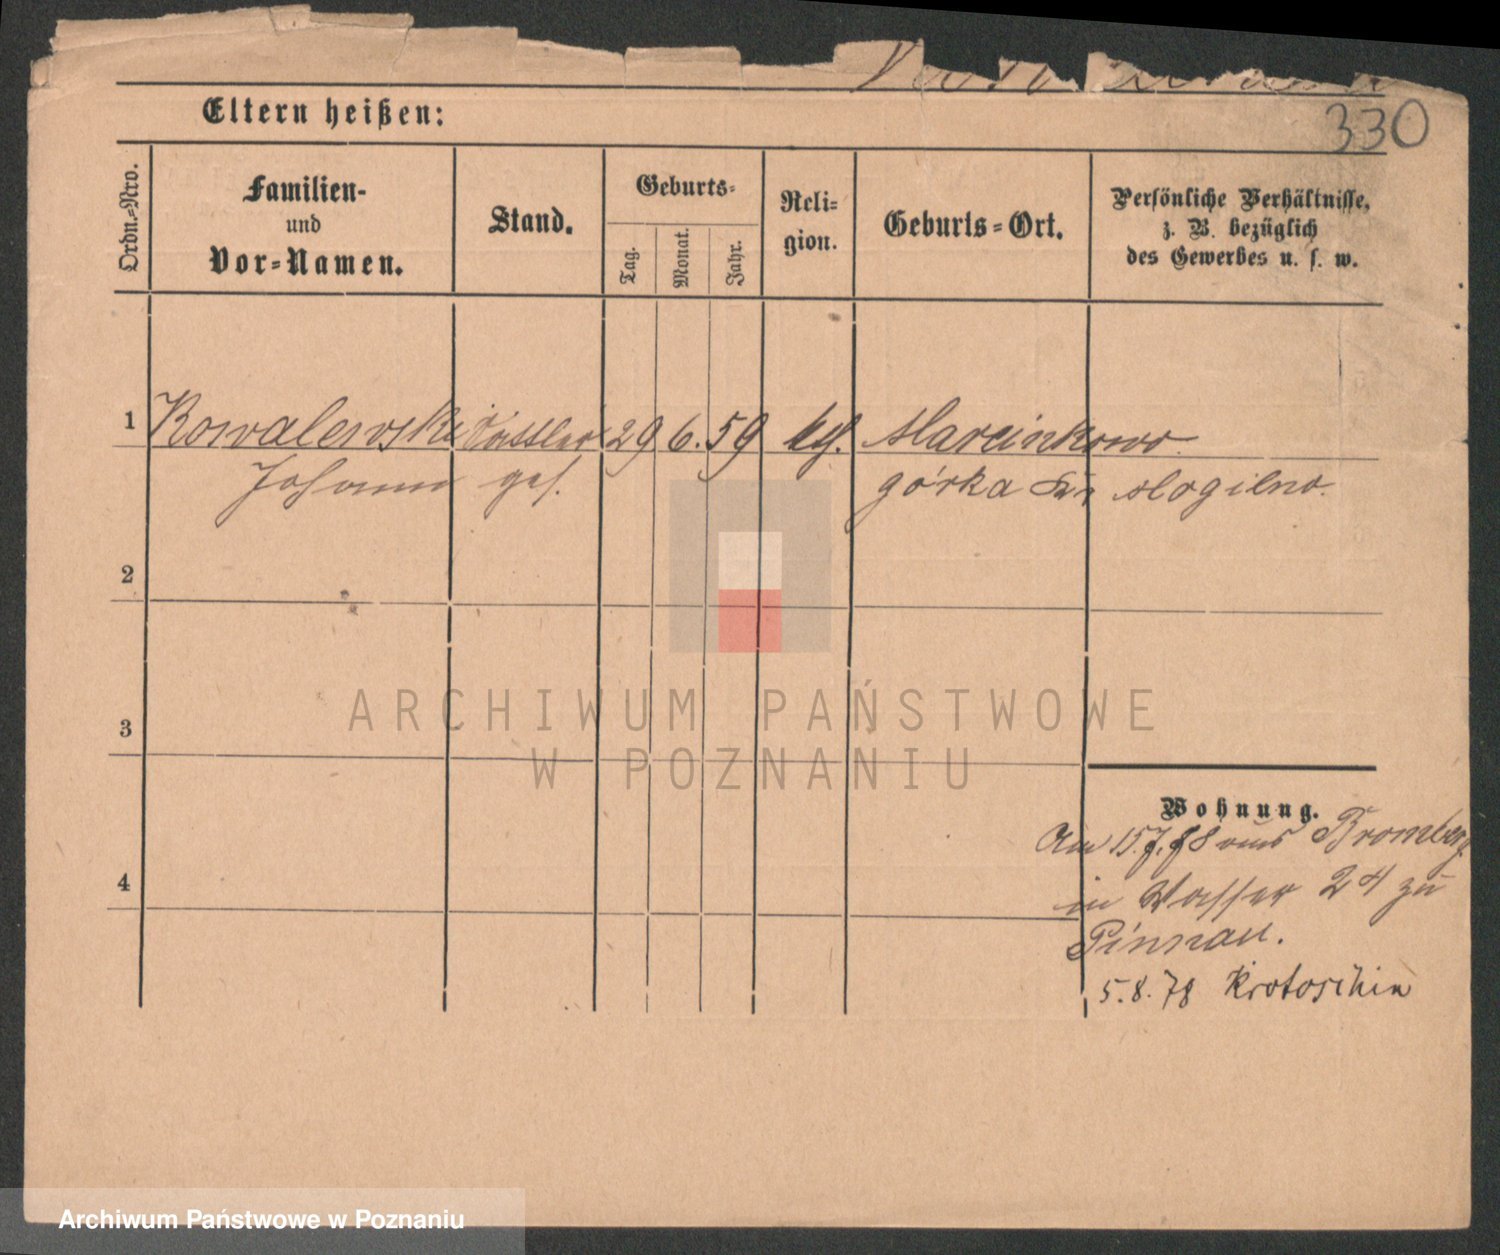 330
Eltern heißen:
Ordn.-Nro.
Familien-
und
Vor-Namen.
Stand.
Geburts-
Tag.
Monat.
Jahr.
Reli-
gion.
Geburts-Ort.
Persönliche Verhältnisse,
z. B. bezüglich
des Gewerbes u. s. w.
1 Kowalewski 29 6. 59 kth. Marcinkowo
Johann ges. górka Kr. Mogilno.
2
3
4
Wohnung.
Am 15.7.78 aus Bromberg
in Wasser 24 zu
Pinnau.
5.8.78 Krotoschin
ARCHIWUM PAŃSTWOWE
W POZNANIU
Archiwum Państwowe w Poznaniu